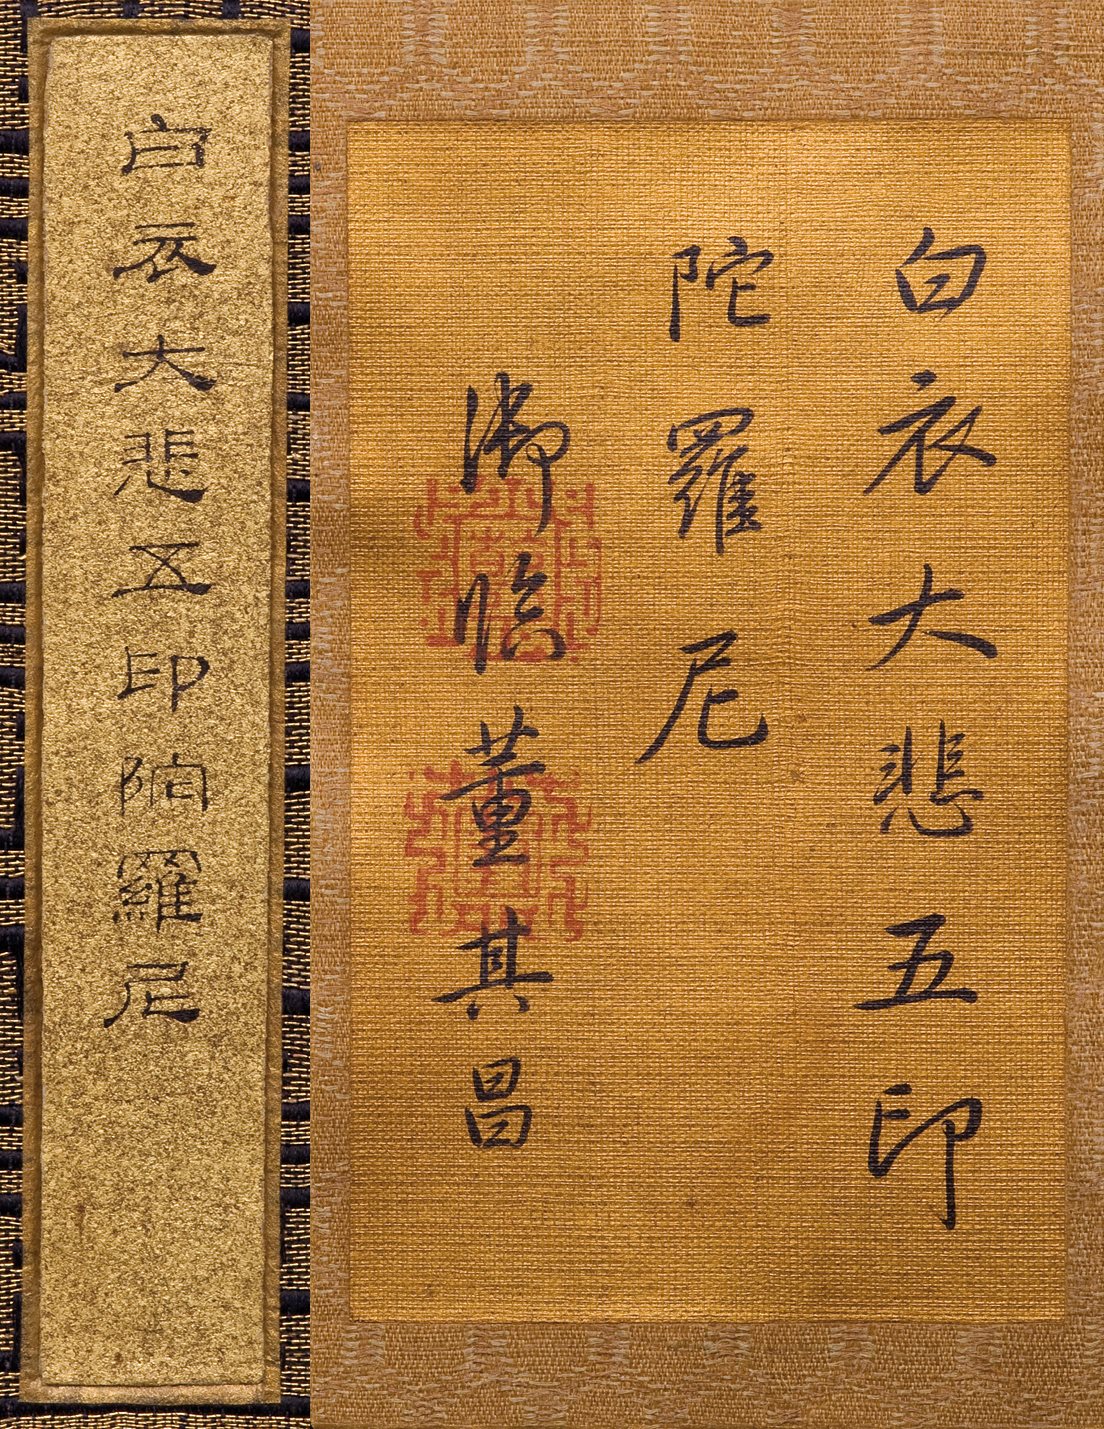 白衣大悲五印陀羅尼
白衣大悲五印
陀羅尼
御臨董其昌